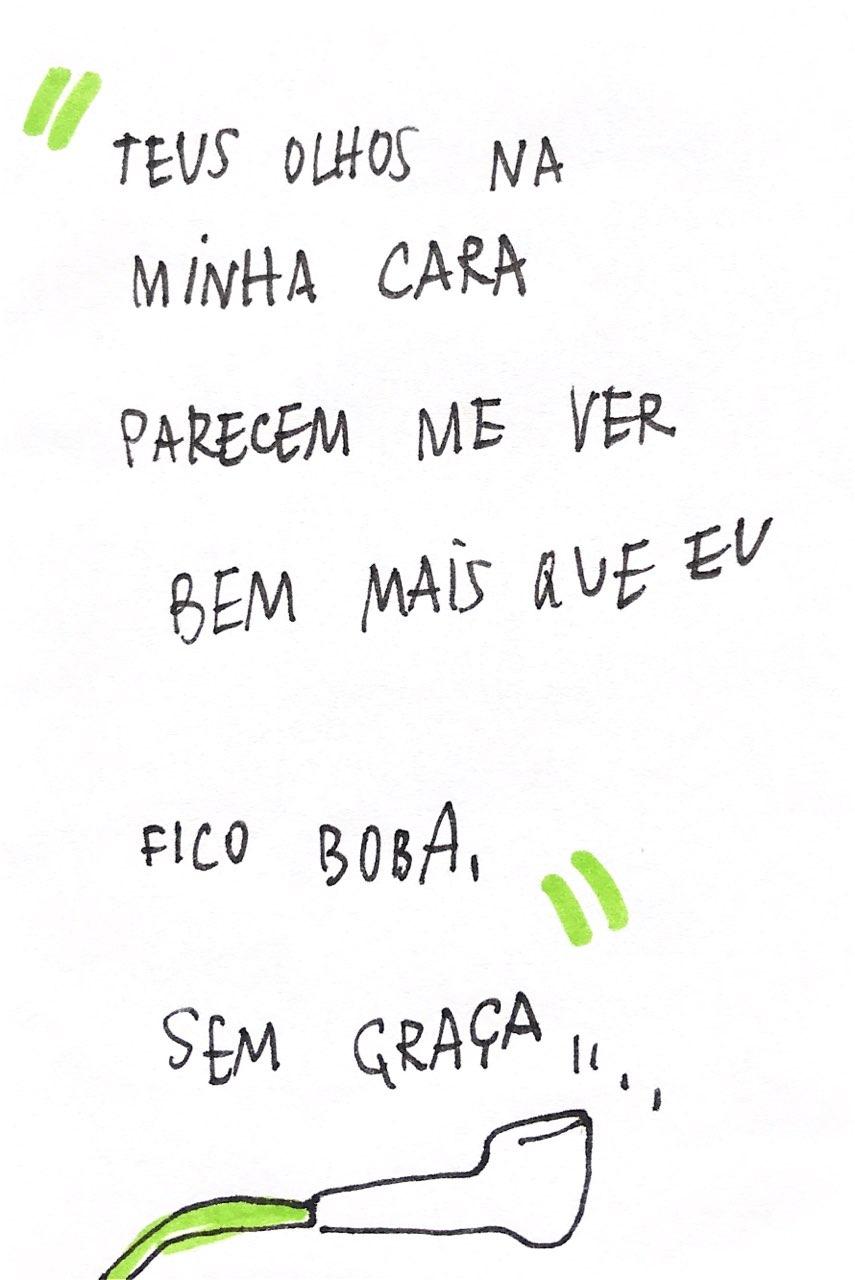 "TEUS OLHOS NA
MINHA CARA
PARECEM ME VER
BEM MAIS QUE EU
FICO BOBA,
SEM GRAÇA"..,